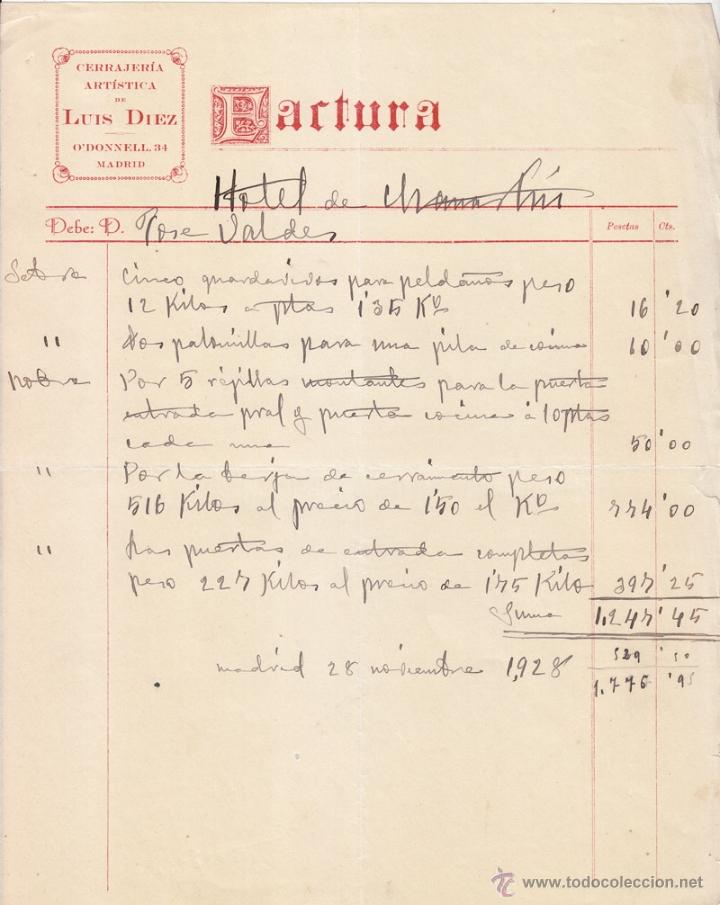 CERRAJERÍA
ARTÍSTICA
DE
LUIS DIEZ
O'DONNELL, 34
MADRID
Factura
Hotel de Chamartin
Debe: D. Jose Valdes Pesetas Cts.
Cinco guardavivos para peldaños peso
12 Kilos a ptas 1'35 Ko 16 '20
" Dos palomillas para una pila de cocina 10 '00
Nobre Por 5 rejillas montantes para la puerta
entrada pral y puerta cocina á 10 ptas
cada una 50 '00
" Por la berja de cerramiento peso
516 Kilos al precio de 1'50 el Ko 774 '00
" Las puertas de entrada completas
peso 227 Kilos al precio de 1'75 Kilo 397 '25
Suma 1.247 '45
529 '50
Madrid 28 noviembre 1,928
1.776 '95
www.todocoleccion.net